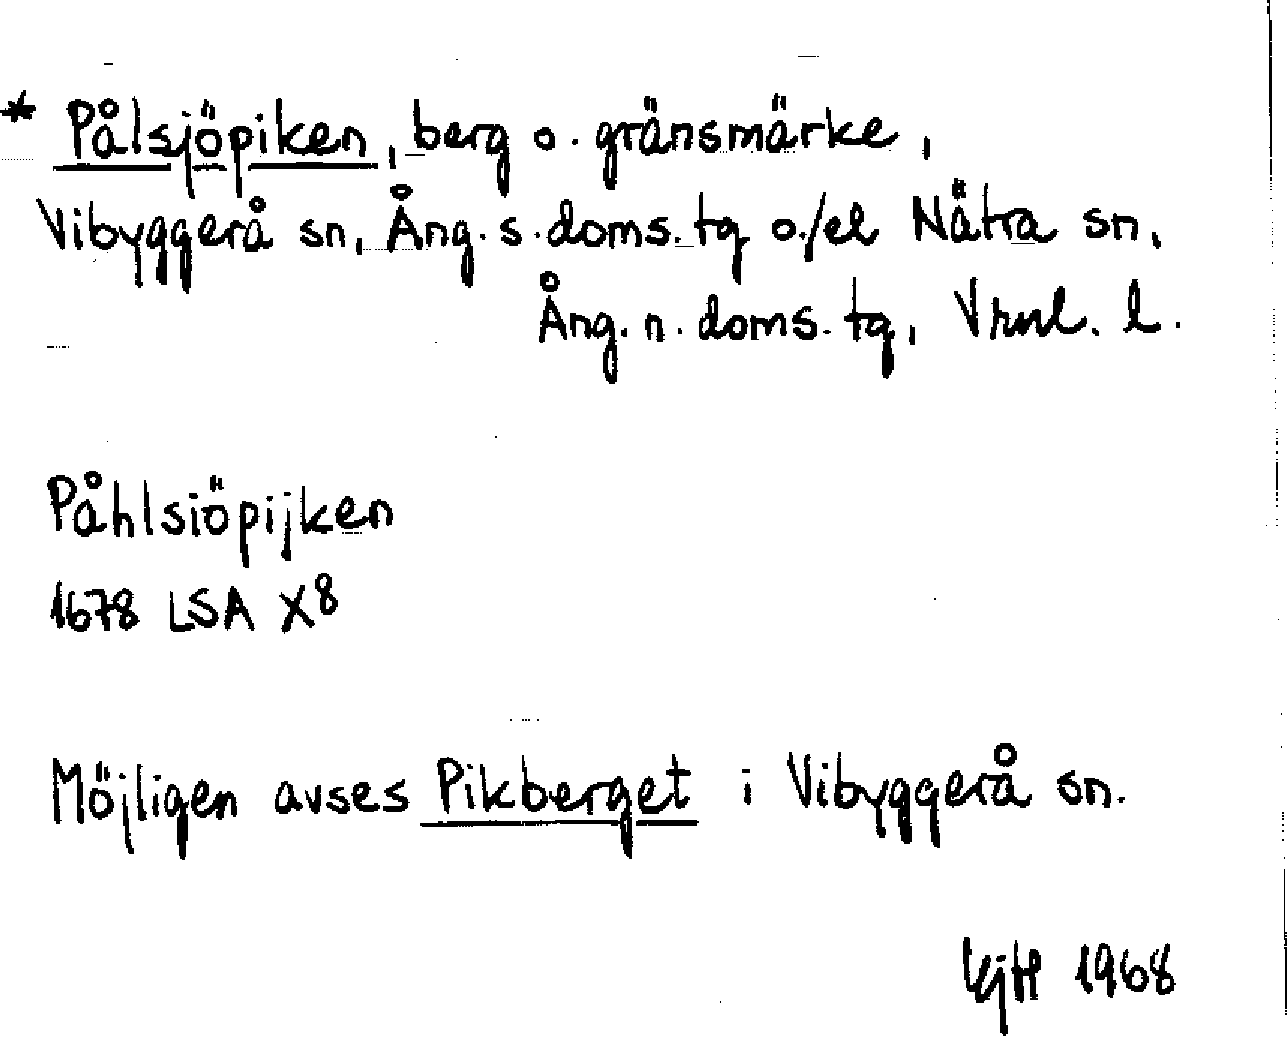 * Pålsjöpiken, berg o. gränsmärke,
Vibyggerå sn, Ång. s. doms. tg o./el Nätra sn,
Ång. n. doms. tg, Vrnl. l.
Påhlsiöpijken
1678 LSA X8
Möjligen avses Pikberget i Vibyggerå sn.
1968